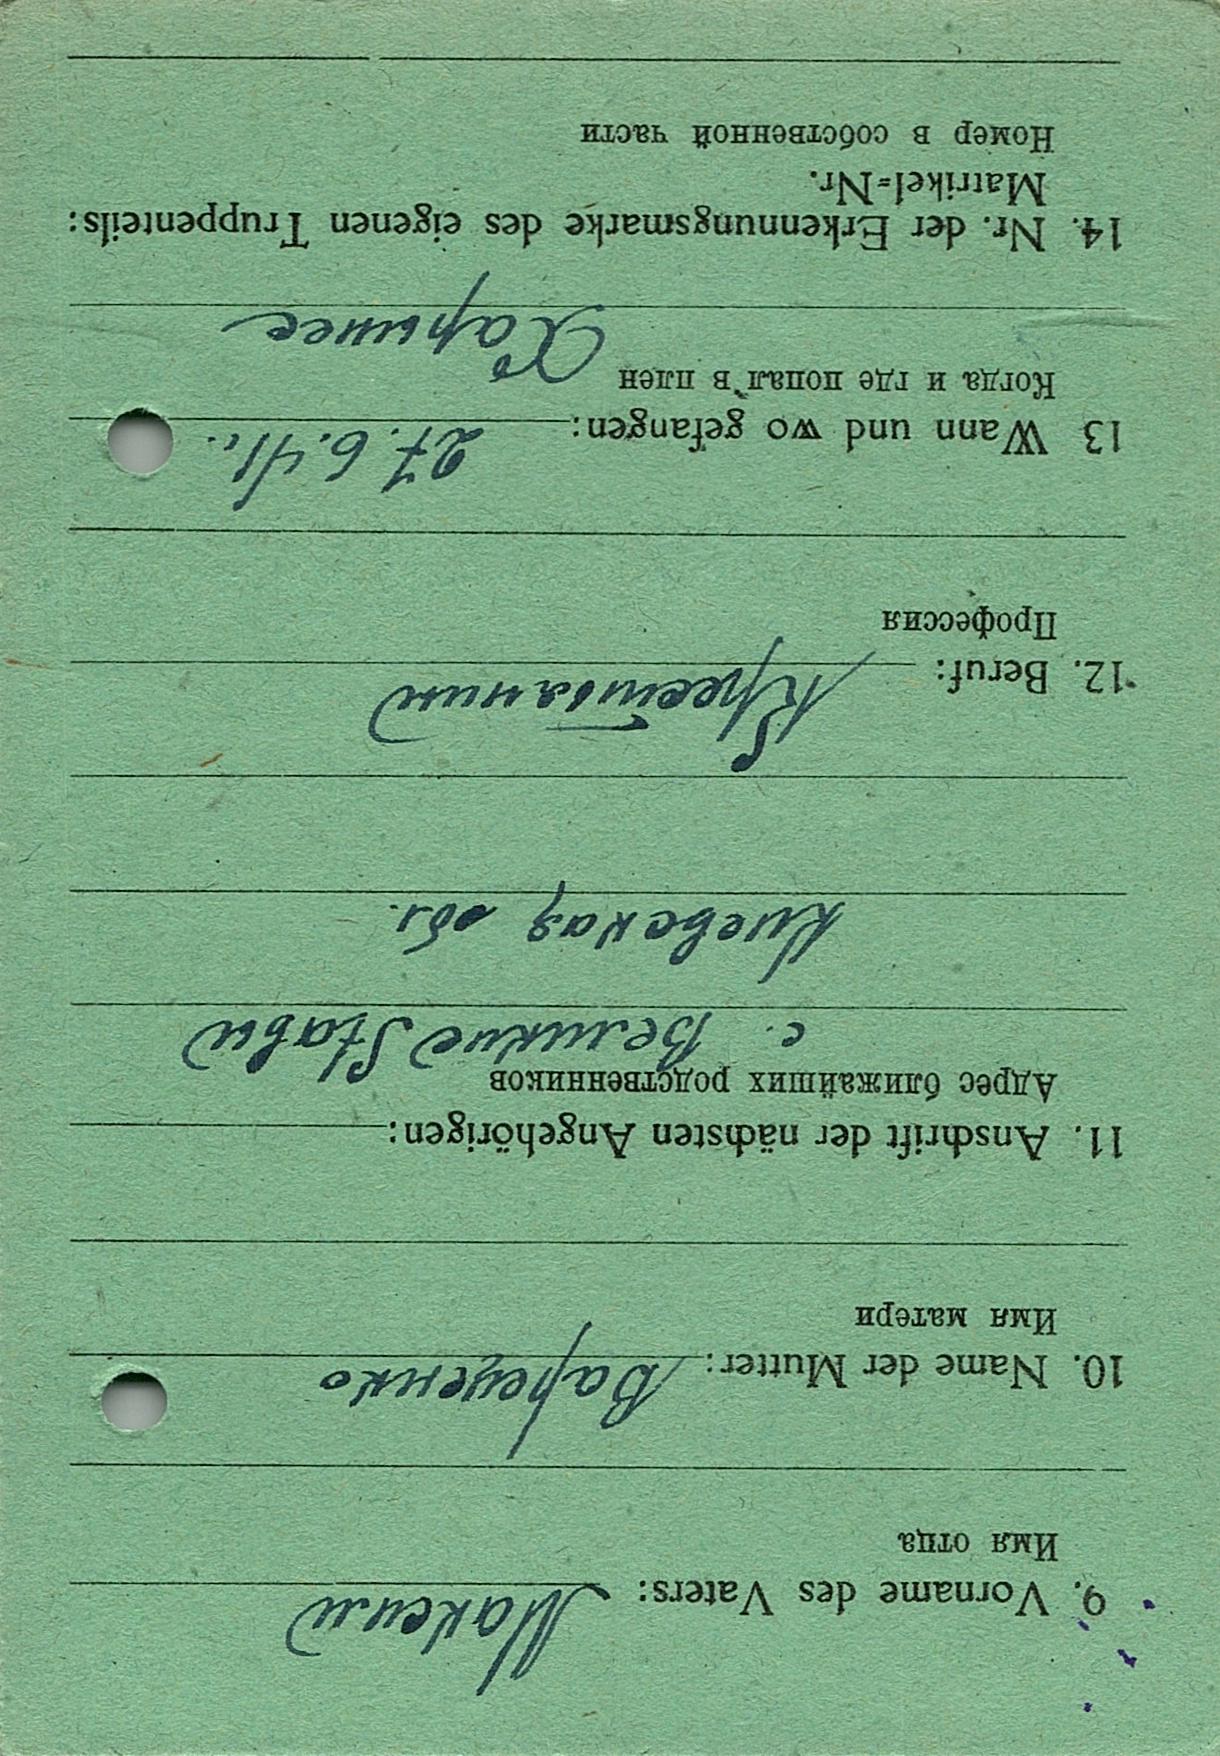 9. Vorname des Vaters: Максим
Имя отца
10. Name der Mutter: Варченко
Имя матери
11. Anschrift der nächsten Angehörigen:
Адрес ближайших родственников
с. Великие Ставы
Киевская обл.
12. Beruf: Крестьянин
Профессия
13 Wann und wo gefangen: 27.6.41г.
Когда и где попал в плен
14. Nr. der Erkennungsmarke des eigenen Truppenteils:
Matrikel=Nr.
Номер в собственной части